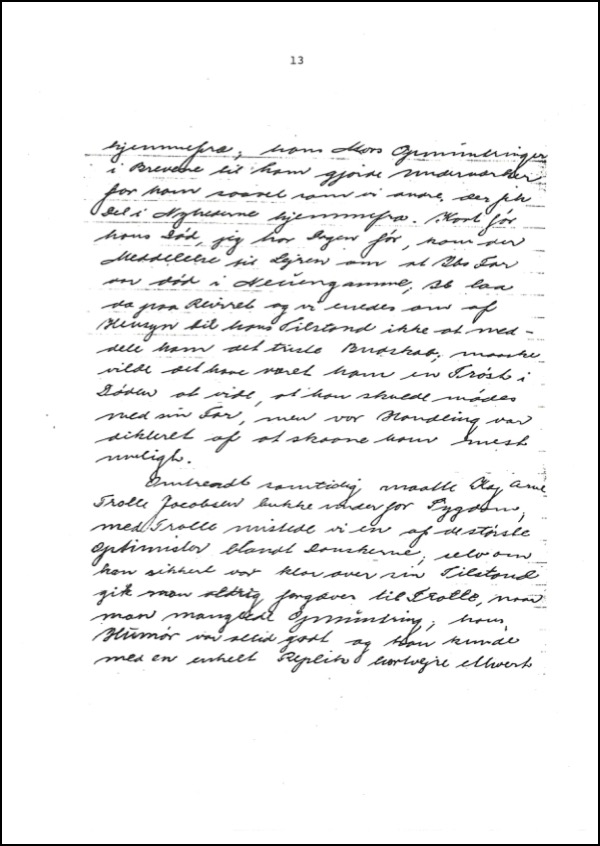 13
hjemmefra; hans Mors Opmuntringer
i Brevene til ham gjorde Underværker
for ham saavel som vi andre, der fik
Del i Nyhederne hjemmefra. Kort før
hans Død, jeg tror Dagen før, kom der
Meddelelse til Lejren om at Ibs Far
var død i Neuengamme, Ib laa
da paa Reviret og vi enedes om af
Hensyn til hans Tilstand ikke at med-
dele ham det triste Budskab; maaske
vilde det have været ham en Trøst i
Døden at vide, at han skulde mødes
med sin Far, men vor Handling var
dikteret af at skaane ham mest
muligt.
Omtrendt samtidig maatte Olaj Arne
Trolle Jacobsen bukke under for Sygdom;
med Trolle mistede vi en af de største
Optimister blandt Danskerne; selv om
han sikkert var klar over sin Tilstand
gik man aldrig forgæves til Trolle, naar
man manglede Opmuntring; hans
Humør var altid godt og han kunde
med en enkelt Replik bortvejre ethvert